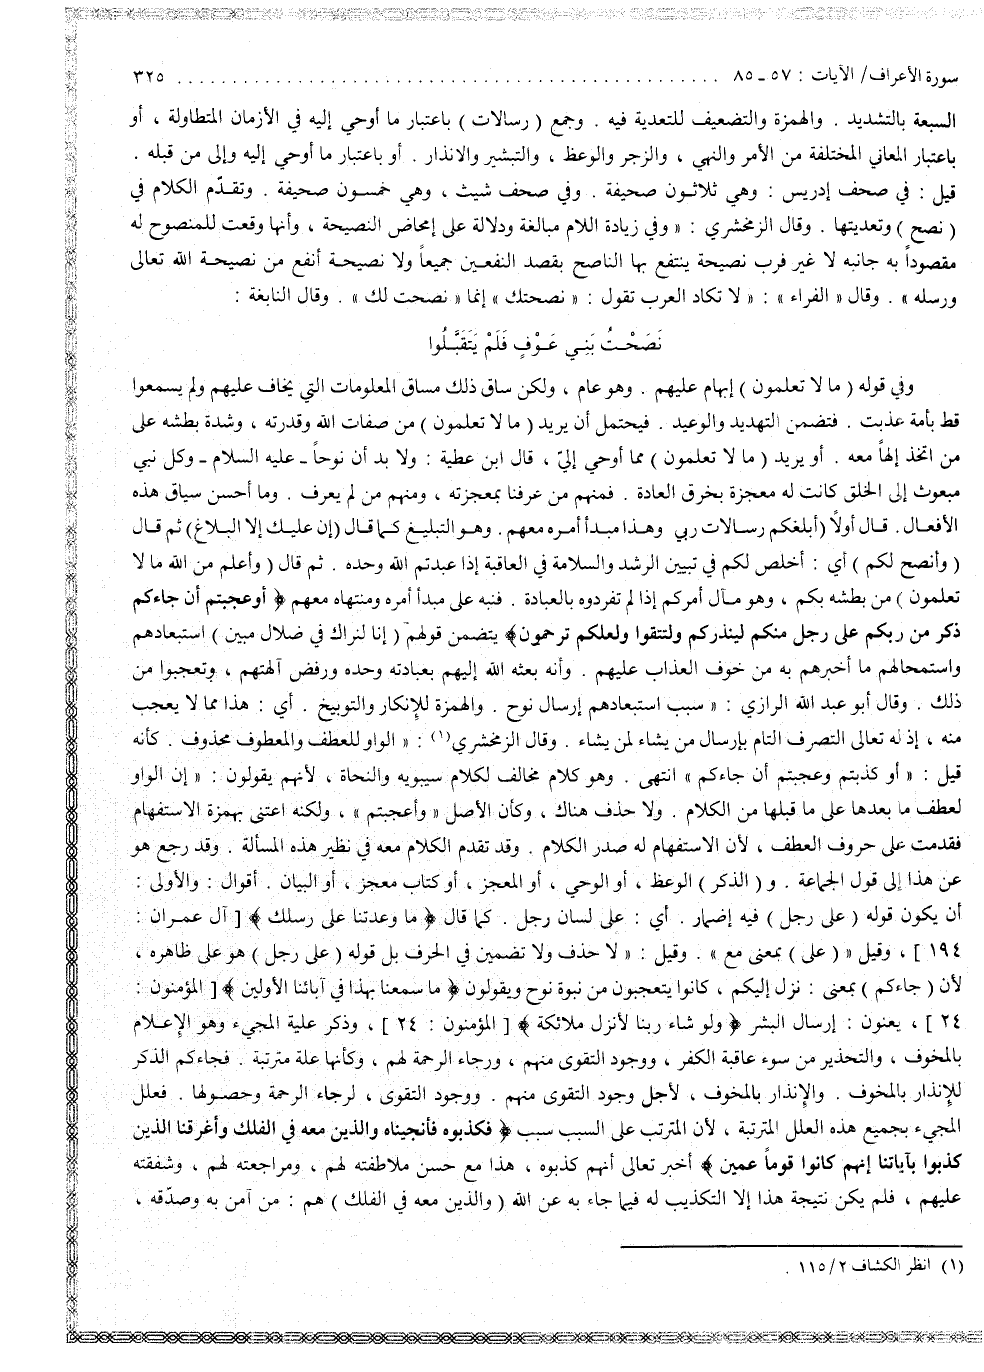 سورة الأعراف/ الآيات : ٥٧ ـ ٨٥ . . . . . . . . . . . . . . . . . . . . . . . . . . . . . . . . . . . . . . . . . . . . . . . . . . ٣٢٥
السبعة بالتشديد . والهمزة والتضعيف للتعدية فيه . وجمع ( رسالات ) باعتبار ما أوحي إليه في الأزمان المتطاولة ، أو
باعتبار المعاني المختلفة من الأمر والنهي ، والزجر والوعظ ، والتبشير والانذار . أو باعتبار ما أوحي إليه وإلى من قبله .
قيل : في صحف إدريس : وهي ثلاثون صحيفة . وفي صحف شيث ، وهي خمسون صحيفة . وتقدّم الكلام في
( نصح ) وتعديتها . وقال الزمخشري : « وفي زيادة اللام مبالغة ودلالة على إمحاض النصيحة ، وأنها وقعت للمنصوح له
مقصوداً به جانبه لا غير فرب نصيحة ينتفع بها الناصح بقصد النفعين جميعاً ولا نصيحة أنفع من نصيحة الله تعالى
ورسله » . وقال « الفراء » : « لا تكاد العرب تقول : « نصحتك » إنما « نصحت لك » . وقال النابغة :
نَصَحْتُ بَنِي عَوْفٍ فَلَمْ يَتَقَبَّلُوا
وفي قوله ( ما لا تعلمون ) إبهام عليهم . وهو عام ، ولكن ساق ذلك مساق المعلومات التي يخاف عليهم ولم يسمعوا
قط بأمة عذبت . فتضمن التهديد والوعيد . فيحتمل أن يريد ( ما لا تعلمون ) من صفات الله وقدرته ، وشدة بطشه على
من اتخذ إلهاً معه . أو يريد ( ما لا تعلمون ) مما أوحي إليّ ، قال ابن عطية : ولا بد أن نوحاً ـ عليه السلام ـ وكل نبي
مبعوث إلى الخلق كانت له معجزة بخرق العادة . فمنهم من عرفنا بمعجزته ، ومنهم من لم يعرف . وما أحسن سياق هذه
الأفعال . قال أولاً (أبلغكم رسالات ربي وهذا مبدأ أمره معهم . وهو التبليغ كما قال (إن عليك إلا البلاغ) ثم قال
( وأنصح لكم ) أي : أخلص لكم في تبيين الرشد والسلامة في العاقبة إذا عبدتم الله وحده . ثم قال ( وأعلم من الله ما لا
تعلمون ) من بطشه بكم ، وهو مآل أمركم إذا لم تفردوه بالعبادة . فنبه على مبدأ أمره ومنتهاه معهم ﴿ أوعجبتم أن جاءكم
ذكر من ربكم على رجل منكم لينذركم ولتتقوا ولعلكم ترحمون﴾ يتضمن قولهم ( إنا لنراك في ضلال مبين ) استبعادهم
واستمحالهم ما أخبرهم به من خوف العذاب عليهم . وأنه بعثه الله إليهم بعبادته وحده ورفض آلهتهم ، وتعجبوا من
ذلك . وقال أبو عبد الله الرازي : « سبب استبعادهم إرسال نوح . والهمزة للإنكار والتوبيخ . أي : هذا مما لا يعجب
منه ، إذ له تعالى التصرف التام بإرسال من يشاء لمن يشاء . وقال الزمخشري(١) : « الواو للعطف والمعطوف محذوف . كأنه
قيل : « أو كذبتم وعجبتم أن جاءكم » انتهى . وهو كلام مخالف لكلام سيبويه والنحاة ، لأنهم يقولون : « إن الواو
لعطف ما بعدها على ما قبلها من الكلام . ولا حذف هناك ، وكأن الأصل « وأعجبتم » ، ولكنه اعتنى بهمزة الاستفهام
فقدمت على حروف العطف ، لأن الاستفهام له صدر الكلام . وقد تقدم الكلام معه في نظير هذه المسألة . وقد رجع هو
عن هذا إلى قول الجماعة . و ( الذكر ) الوعظ ، أو الوحي ، أو المعجز ، أو كتاب معجز ، أو البيان . أقوال : والأولى :
أن يكون قوله ( على رجل ) فيه إضمار . أي : على لسان رجل . كما قال ﴿ ما وعدتنا على رسلك ﴾ [ آل عمران :
١٩٤ ] ، وقيل « ( على ) بمعنى مع » . وقيل : « لا حذف ولا تضمين في الحرف بل قوله ( على رجل ) هو على ظاهره ،
لأن ( جاءكم ) بمعنى : نزل إليكم ، كانوا يتعجبون من نبوة نوح ويقولون ﴿ ما سمعنا بهذا في آبائنا الأولين ﴾ [ المؤمنون :
٢٤ ] ، يعنون : إرسال البشر ﴿ ولو شاء ربنا لأنزل ملائكة ﴾ [ المؤمنون : ٢٤ ] ، وذكر علية المجيء وهو الإعلام
بالمخوف ، والتحذير من سوء عاقبة الكفر ، ووجود التقوى منهم ، ورجاء الرحمة لهم ، وكأنها علة مترتبة . فجاءكم الذكر
للإنذار بالمخوف . والإنذار بالمخوف ، لأجل وجود التقوى منهم . ووجود التقوى ، لرجاء الرحمة وحصولها . فعلل
المجيء بجميع هذه العلل المترتبة ، لأن المترتب على السبب سبب ﴿ فكذبوه فأنجيناه والذين معه في الفلك وأغرقنا الذين
كذبوا بآياتنا إنهم كانوا قوماً عمين ﴾ أخبر تعالى أنهم كذبوه ، هذا مع حسن ملاطفته لهم ، ومراجعته لهم ، وشفقته
عليهم ، فلم يكن نتيجة هذا إلا التكذيب له فيما جاء به عن الله ( والذين معه في الفلك ) هم : من آمن به وصدّقه ،
(١) انظر الكشاف ١١٥/٢ .